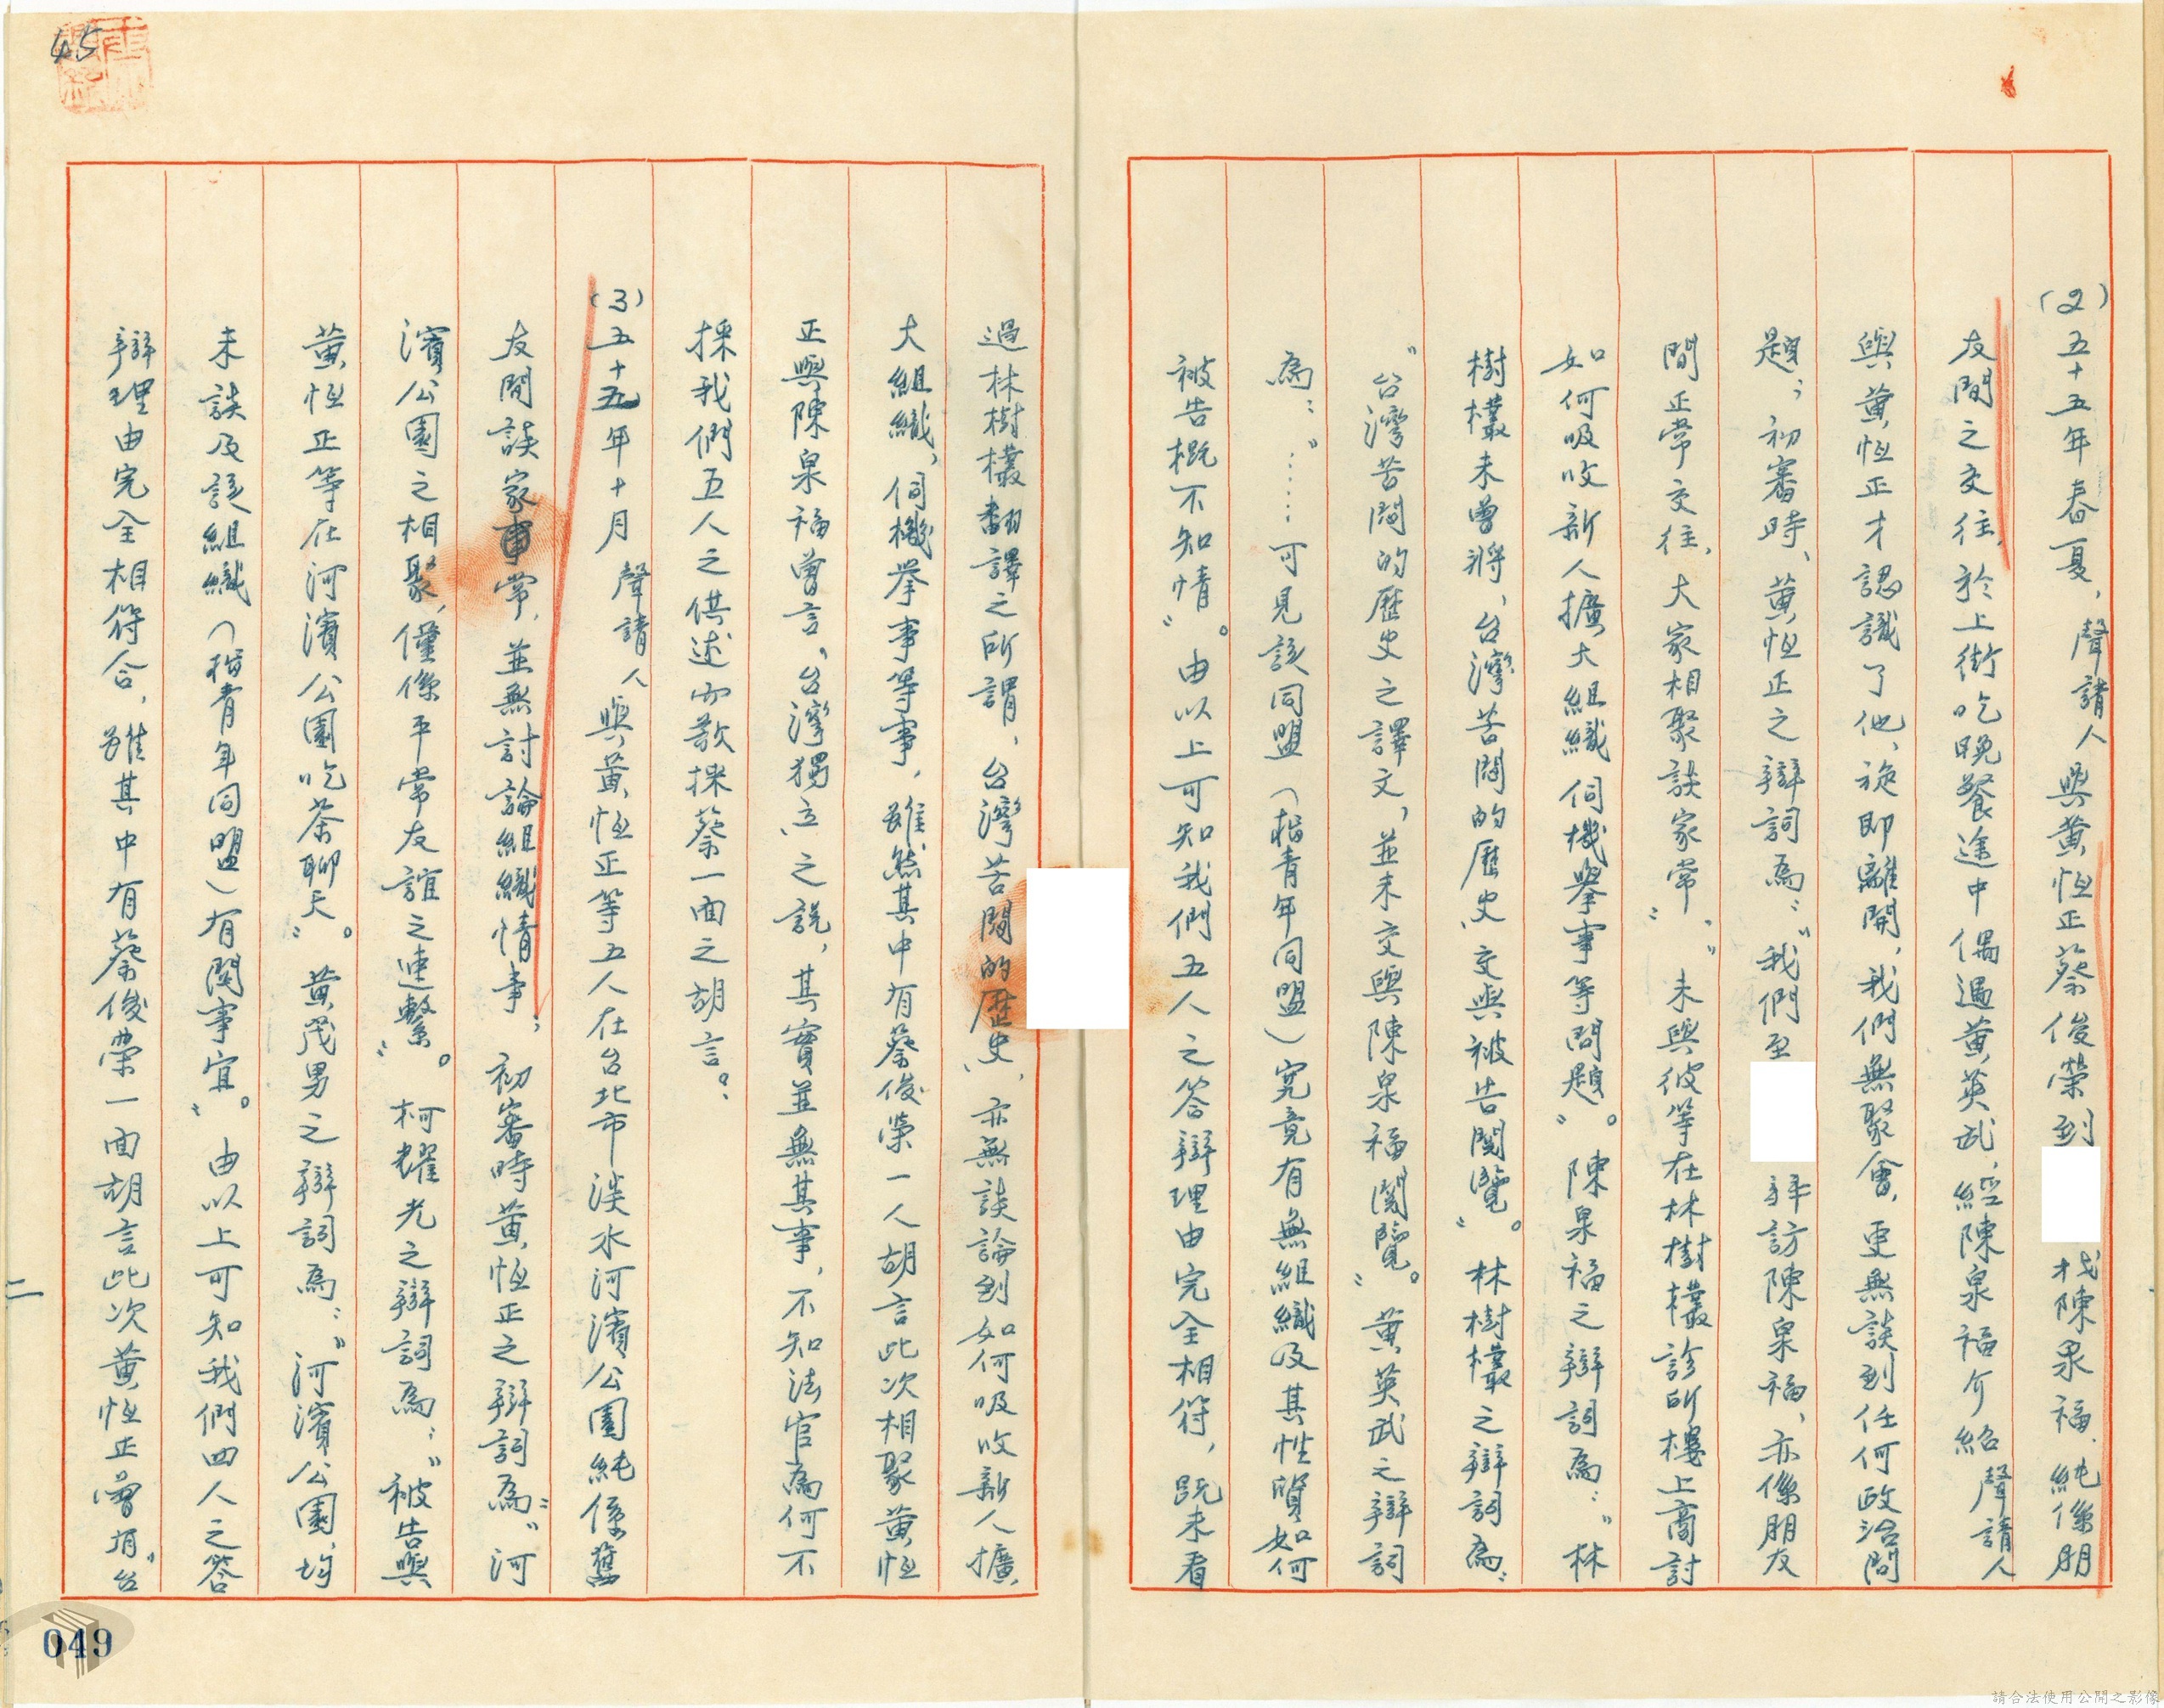 (2)五十五年春夏，聲請人與黃恒正蔡俊榮到 找陳泉福，純係朋
友間之交往，於上街吃晚餐途中偶遇黃英武，經陳泉福介紹聲請人
與黃恒正才認識了他，旋即離開，我們無聚會，更無談到任何政治問
題；初審時、黃恒正之辯詞為："我們至 拜訪陳泉福，亦係朋友
間正常交往，大家相聚談家常"，"未與彼等在林樹欉診所樓上商討
如何吸收新人擴大組織伺機舉事等問題"。陳泉福之辯詞為："林
樹欉未曾將、台灣苦悶的歷史、交與被告閱覽"。林樹欉之辯詞為：
"台灣苦悶的歷史之譯文，並未交與陳泉福閱覽"。黃英武之辯詞
為："……可見該同盟（指青年同盟）究竟有無組織及其性質如何
被告概不知情"。由以上可知我們五人之答辯理由完全相符，既未看
過林樹欉翻譯之所謂、台灣苦悶的歷史、亦無談論到如何吸收新人擴
大組織，伺機举事等事，雖然其中有蔡俊榮一人胡言此次相聚黃恒
正與陳泉福曾言"台灣獨立"之說，其實並無其事，不知法官為何不
採我們五人之供述而歡採蔡一面之胡言。
(3)五十五年十月聲請人與黃恒正等五人在台北市淡水河濱公園純係舊
友閒談家常，並無討論組織情事；初審時黃恒正之辯詞為："河
濱公園之相聚，僅係平常友誼之連繫"。柯耀光之辯詞為："被告與
黃恒正等在河濱公園吃茶聊天"。黃茂男之辯詞為："河濱公園，均
未談及該組織（指青年同盟）有関事宜"。由以上可知我們四人之答
辯理由完全相符合，雖其中有蔡俊榮一面胡言此次黃恒正曾有"台
二
45
049
請合法使用公開之影像